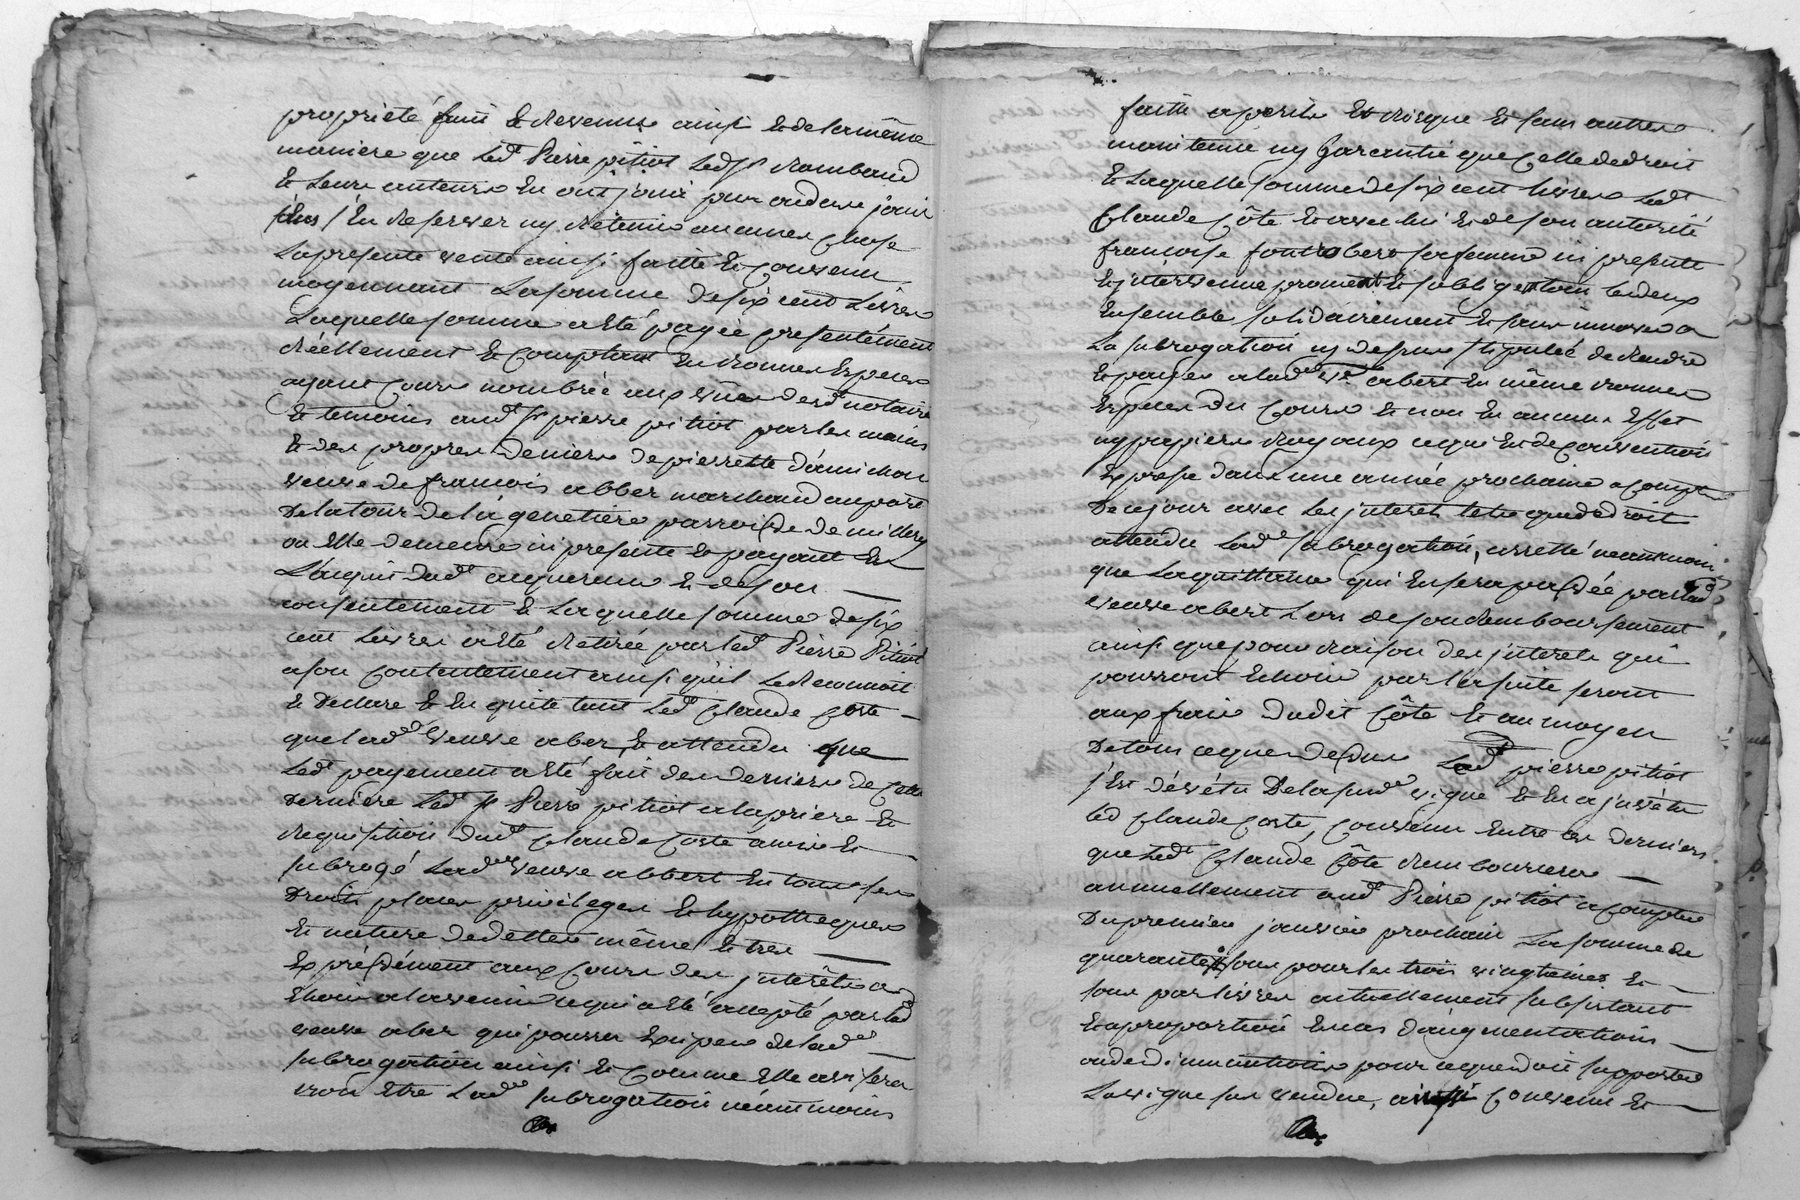 proprieté fruit & revenus ainsi & de la même
maniere que led.t Pierre pitiot led. S.r Rambaud
& leurs auteurs en ont joui pur ou deu jouir
sans s'en reserver ny retenir aucunes chose
la presente vente ainsi faitte & convenu
moyennant la somme de six cent Livres
laquelle somme a été payée presentement
réellement & comptant en bonnes Especes
ayant cours nombrée aux vües desd. notaire
& temoins aud. S.r pierre pitiot par les mains
& des propres deniers de pierrette damichon
veuve de francois abber marchand au port
de la tour de la genetiere parroisse de millery
ou Elle demeure ici presente & payant En
l'acquit dud.t acquereur & de son
consentement & laquelle somme de six
cent livres a été retirée par led. Pierre Pitiot
a son contentement ainsi qu'il le reconnoit
& declare & en quitte tant led. Claude Coste
que lad.e veuve aber, & attendu que
led.t payement a été fait des derniers de cette
derniere led.t S.r Pierre pitiot a la priere &
requisition dud.t Claude Coste a mis &
subrogé lad.e veuve abbert en tous ses
Droits places privileges & hypotheques
& nature de dettes même & tres
Expressément aux cours des jntérêts a
Echoir a l'avenir ce qui a été accepté par lad.e
veuve aber qui pourra Exiper de lad.e
subrogation ainsi & comme Elle avisera
bon être lad.e subrogation néanmoins
faitte a perils & risque & sans autres
maintenüe ny garantie que celle de droit
& laquelle somme de six cent livres led.t
Claude Côte & avec lui & de son autorité
francoise fontrobert sa femme ici presente
& jntervenue promett & s'obligent tous les deux
Ensemble solidairement & sans innover a
la subrogation cy dessus stipulée de rendre
& payer a lad.e v.e abert En même bonnes
Especes du cours & non En aucuns Effet
ny papiers royaux ce qui Est de convention
Expresse dans une année prochaine a compter
De ce jour avec les jnterets tels que de droit
attendu lad.e subrogation, arretté neantmoins
que la quittance qui En sera passée par lad.e
veuve abert Lors de son remboursement
ainsi que pour raison des jnterets qui
pourront Echoir par la suite seront
aux frais dudit Côte & au moyen
De tous ce que dessus led.t pierre pitiot
s'est dévétu De la susd.e vigne & En a jnvétu
led Claude Coste, convenu Entre ces derniers
que led.t Claude Côte remboursera
annuellement aud.t Pierre pitiot a compter
Du premier janvier prochain la somme de
quarante sous pour les trois vingtiemes &
sous par livres actuellement subsistant
& a proportion En cas d'augmentation
ou de diminution pour ce que doit supporter
la vigne sus vendue, ainsi convenu &